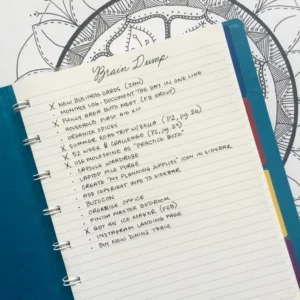 Brain Dump
X NEW BUSINESS CARDS (JAN)
MONTHLY LOG: DOCUMENT THE DAY IN ONE LINE
X PHILLY AREA BUJO MEET (FB GROUP)
HOUSEHOLD FIRST AID KIT
ORGANIZE SPICES
X SUMMER ROAD TRIP W/BELLA (P2, pg 26)
X 52 WEEK $ CHALLENGE (P2, pg 25)
X USE MOLESKINE AS "PRACTICE BUJO"
CAPSULE WARDROBE
LAPTOP FILE PURGE
CREATE "MY PLANNING SUPPLIES" ICON IN SIDEBAR
ADD COPYRIGHT INFO TO SIDEBAR
BUJOCON
ORGANIZE OFFICE
FINISH MASTER BEDROOM
X GET AN ICE MAKER (FEB)
INSTAGRAM LANDING PAGE
BUY NEW DINING TABLE